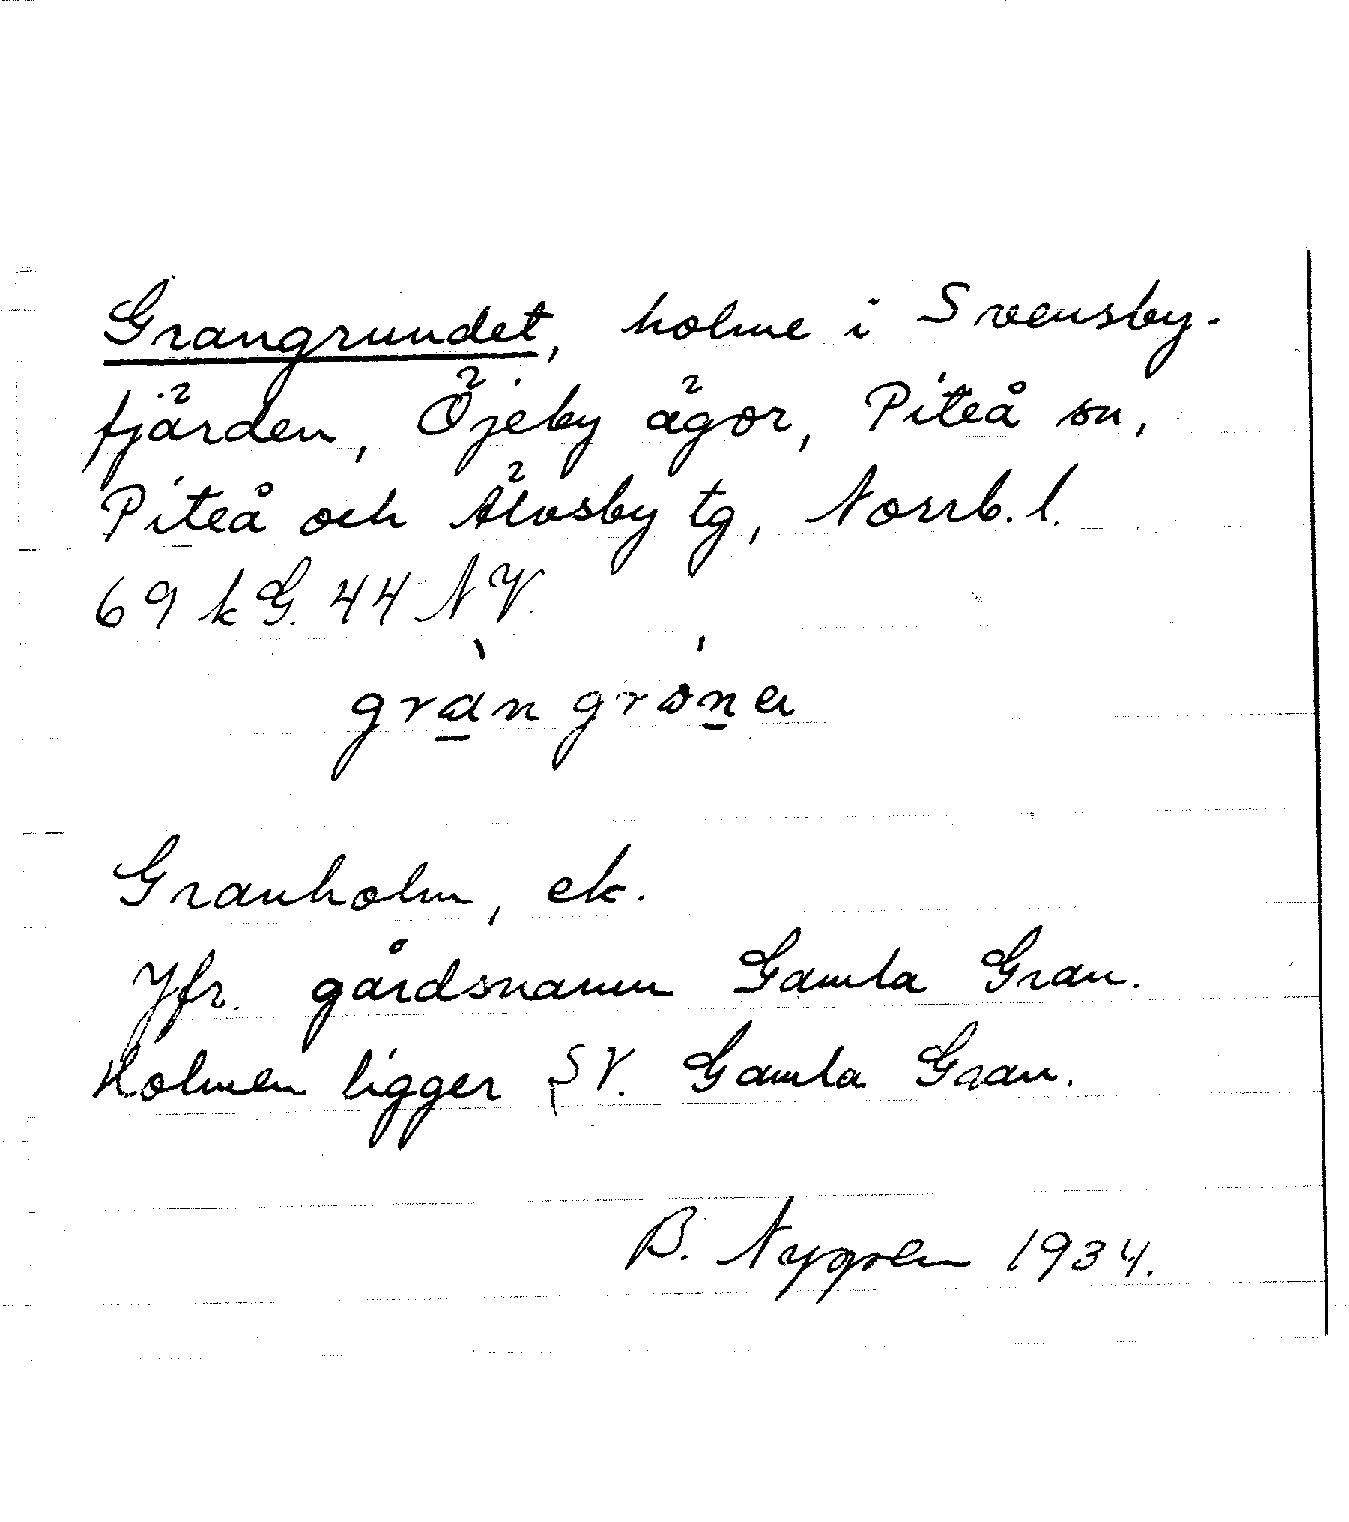 Grangrundet, holme i Svensby-
fjärden, Öjeby ägor, Piteå sn,
Piteå och Älvsby tg, Norrb. l.
69 k G. 44 N V.
Granholm, ek.
Jfr. gårdsnamn Gamla Gran.
Holmen ligger SV. Gamla Gran.
B. Nygren 1934.